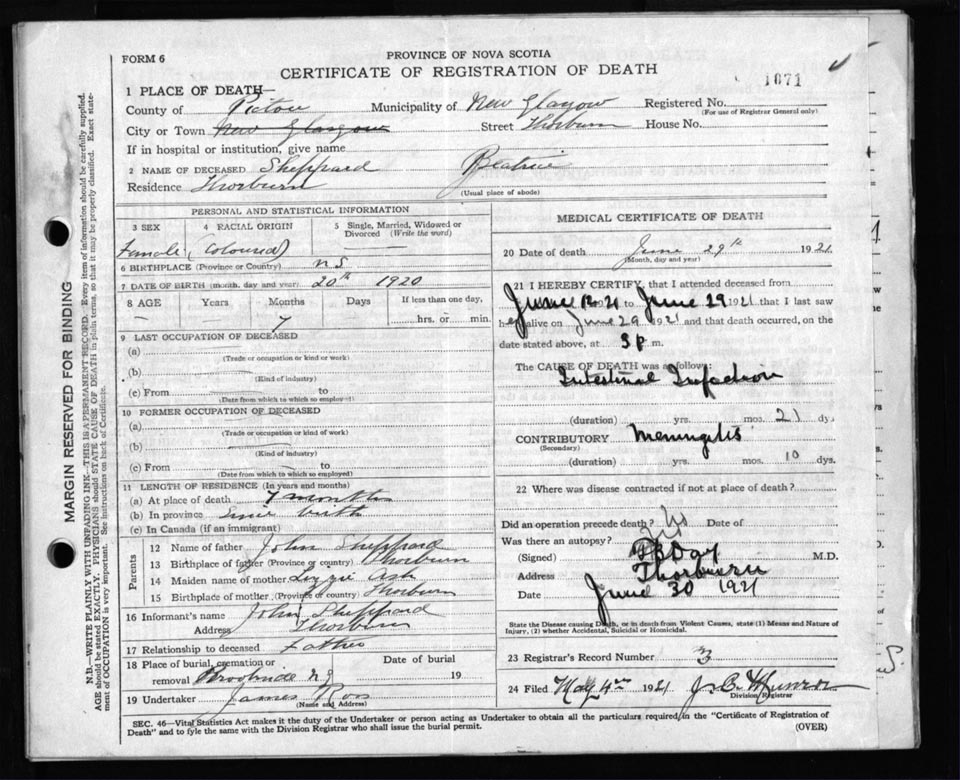 FORM 6
PROVINCE OF NOVA SCOTIA
CERTIFICATE OF REGISTRATION OF DEATH
1071
1 PLACE OF DEATH—
County of Pictou Municipality of New Glasgow Registered No.
(For use of Registrar General only)
City or Town New Glasgow Street Thorburn House No.
If in hospital or institution, give name
2 NAME OF DECEASED Sheppard Beatrice
Residence Thorburn (Usual place of abode)
MARGIN RESERVED FOR BINDING
N.B.—WRITE PLAINLY WITH UNFADING INK—THIS IS A PERMANENT RECORD. Every item of information should be carefully supplied.
AGE should be stated EXACTLY. PHYSICIANS should STATE CAUSE OF DEATH in plain terms, so that it may be properly classified. Exact state-
ment of OCCUPATION is very important. See instructions on back of Certificate.
PERSONAL AND STATISTICAL INFORMATION
3 SEX 4 RACIAL ORIGIN 5 Single, Married, Widowed or
Divorced (Write the word)
Female (Coloured) —
6 BIRTHPLACE (Province or Country) NS
7 DATE OF BIRTH (month, day and year) 20th 1920
8 AGE Years Months Days If less than one day,
— 7 hrs. or min.
9 LAST OCCUPATION OF DECEASED
(a)
(Trade or occupation or kind of work)
(b)
(Kind of industry)
(c) From to
(Date from which to which so employed)
10 FORMER OCCUPATION OF DECEASED
(a)
(Trade or occupation or kind of work)
(b)
(Kind of industry)
(c) From to
(Date from which to which so employed)
11 LENGTH OF RESIDENCE (In years and months)
(a) At place of death 7 months
(b) In province birth
(c) In Canada (if an immigrant)
Parents
12 Name of father John Sheppard
13 Birthplace of father (Province or country) Thorburn
14 Maiden name of mother Lizzie Ash
15 Birthplace of mother (Province or country) Thorburn
16 Informant's name John Sheppard
Address Thorburn
17 Relationship to deceased Father
18 Place of burial, cremation or Date of burial
removal 19
19 Undertaker James Ross
(Name and Address)
MEDICAL CERTIFICATE OF DEATH
20 Date of death June 29th 1921
(Month, day and year)
21 I HEREBY CERTIFY, that I attended deceased from
June 1921 to June 29 1921 that I last saw
her alive on June 29 1921 and that death occurred, on the
date stated above, at 3 p m.
The CAUSE OF DEATH was as follows:
Intestinal Infection
(duration) yrs. mos. 21 dys.
CONTRIBUTORY Meningitis
(Secondary)
(duration) yrs. mos. 10 dys.
22 Where was disease contracted if not at place of death?
Did an operation precede death? No Date of
Was there an autopsy?
(Signed) Day M.D.
Address Thorburn
Date June 30 1921
State the Disease causing Death, or in death from Violent Causes, state (1) Means and Nature of
Injury, (2) whether Accidental, Suicidal or Homicidal.
23 Registrar's Record Number 3
24 Filed 1921 Munro
Division Registrar
SEC. 46—Vital Statistics Act makes it the duty of the Undertaker or person acting as Undertaker to obtain all the particulars required in the "Certificate of Registration of
Death" and to fyle the same with the Division Registrar who shall issue the burial permit. (OVER)